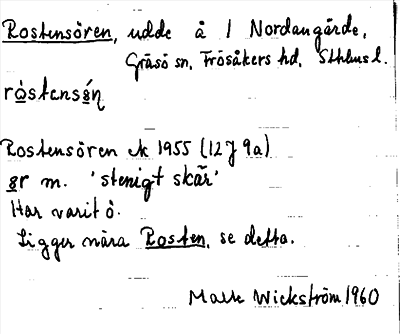 Rostensören, udde å 1 Nordangärde,
Gräsö sn, Frösåkers hd, Sthlms l.
Rostensören ek 1955 (12J 9a)
m. 'stenigt skär'
Har varit ö.
Ligger nära Rosten, se detta.
Wickström 1960